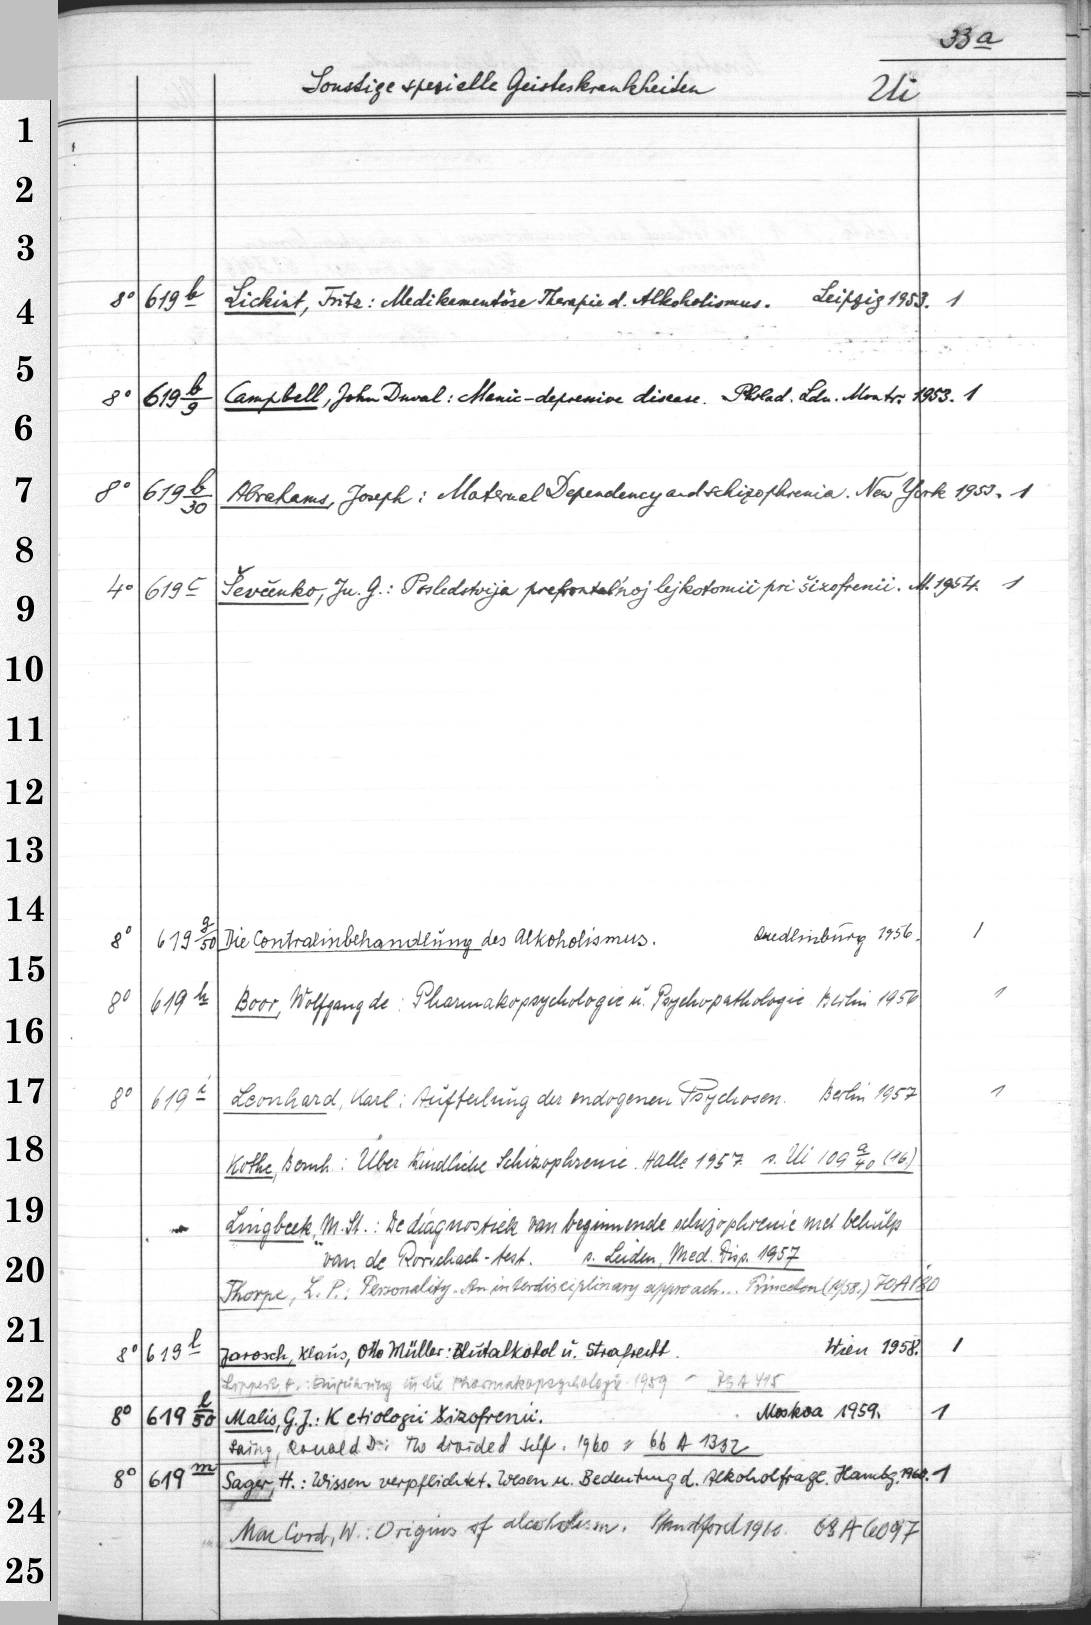 33a
Sonstige spezielle Geisteskrankheiten Ui
1
2
3
4
8° 619 b Lickint, Fritz: Medikamentöse Therapie d. Alkoholismus. Leipzig 1953. 1
5
8° 619 b/9 Campbell, John Duval: Manic-depressive disease. Philad. Ldn. Montr. 1953. 1
6
7
8° 619 b/30 Abrahams, Joseph: Maternal Dependency and schizophrenia. New York 1953. 1
8
4° 619 c Ševčenko, Ju. G.: Posledstvija prefrontal'noj lejkotomii pri šizofrenii. M. 1954. 1
9
10
11
12
13
14
8° 619 g/50 Die Contralinbehandlung des Alkoholismus. Quedlinburg 1956. 1
15
8° 619 h Boor, Wolfgang de: Pharmakopsychologie u. Psychopathologie Berlin 1956 1
16
17
8° 619 i Leonhard, Karl: Aufteilung der endogenen Psychosen. Berlin 1957 1
18
Kothe, Bernh.: Über kindliche Schizophrenie. Halle 1957 s. Ui 109 a/40 (16)
19
Lingbeek, M. St.: De diagnostiek van beginnende schizophrenie met behulp
20
van de Rorschach-test. s. Leiden, Med. Diss. 1957
Thorpe, L. P.: Personality. An interdisciplinary approach... Princeton (1958.)
21
8° 619 l Jarosch, Klaus, Otto Müller: Blutalkohol u. Strafrecht. Wien 1958. 1
22
Lippert, H.: Einführung in die Pharmakopsychologie. 1959
8° 619 l/50 Malis, G. J.: K etiologii šizofrenii. Moskva 1959. 1
23
Laing, Ronald D.: The divided self. 1960 66 A 1332
8° 619 m Sager, H.: Wissen verpflichtet. Wesen u. Bedeutung d. Alkoholfrage. Hambg. 1960. 1
24
Mac Cord, W.: Origins of alcoholism. Standford 1960. 68 A 6097
25